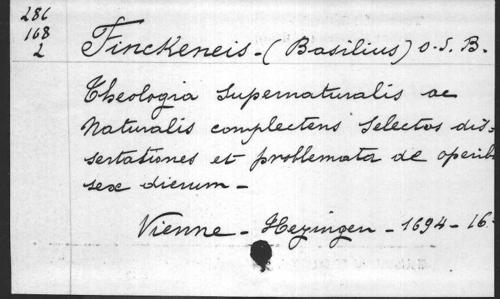 286
168
2
Finckeneis - (Basilius) o. S. B.
Theologia supernaturalis ac
Naturalis complectens selectas dis=
sertationes et problemata de operib
sex dierum -
Vienne - Heyingen - 1694 - 16